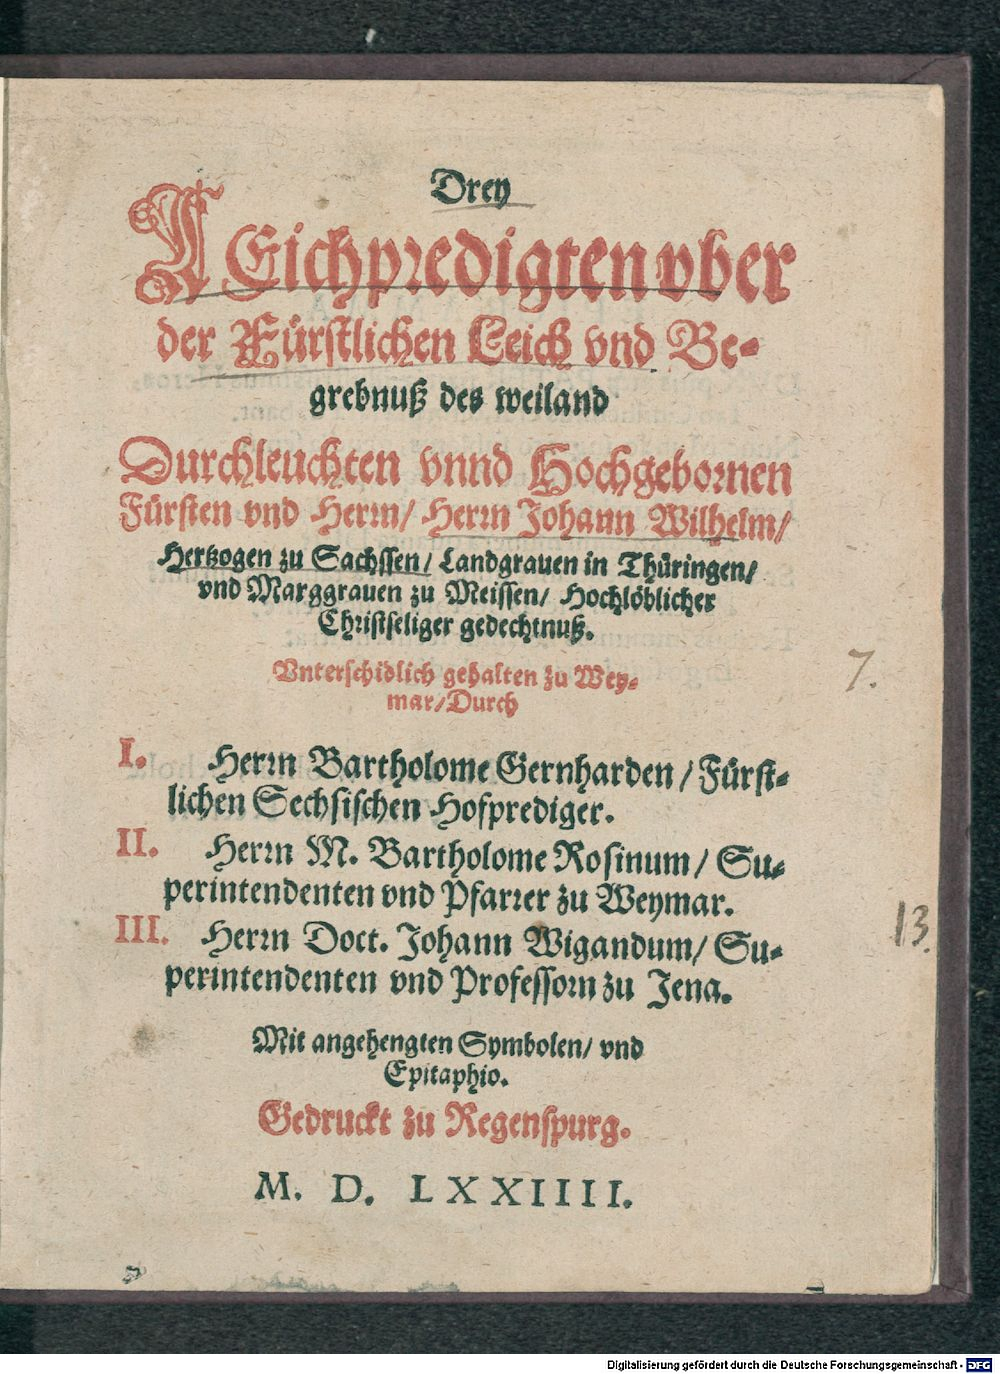 Drey
LEichpredigten vber
der Fürstlichen Leich vnd Be-
grebnuß des weiland
Durchleuchten vnnd Hochgebornen
Fürsten vnd Herrn/ Herrn Johann Wilhelm/
Hertzogen zu Sachssen/ Landgrauen in Thüringen/
vnd Marggrauen zu Meissen/ Hochlöblicher
Christseliger gedechtnuß.
Vnterschidlich gehalten zu Wey-
mar/Durch
7.
I. Herrn Bartholome Gernharden/Fürst-
lichen Sechsischen Hofprediger.
II. Herrn M. Bartholome Rosinum/ Su-
perintendenten vnd Pfarrer zu Weymar.
III. Herrn Doct. Johann Wigandum/ Su-
13.
perintendenten vnd Professorn zu Jena.
Mit angehengten Symbolen/ vnd
Epitaphio.
Gedruckt zu Regenspurg.
M. D. LXXIIII.
Digitalisierung gefördert durch die Deutsche Forschungsgemeinschaft - DFG